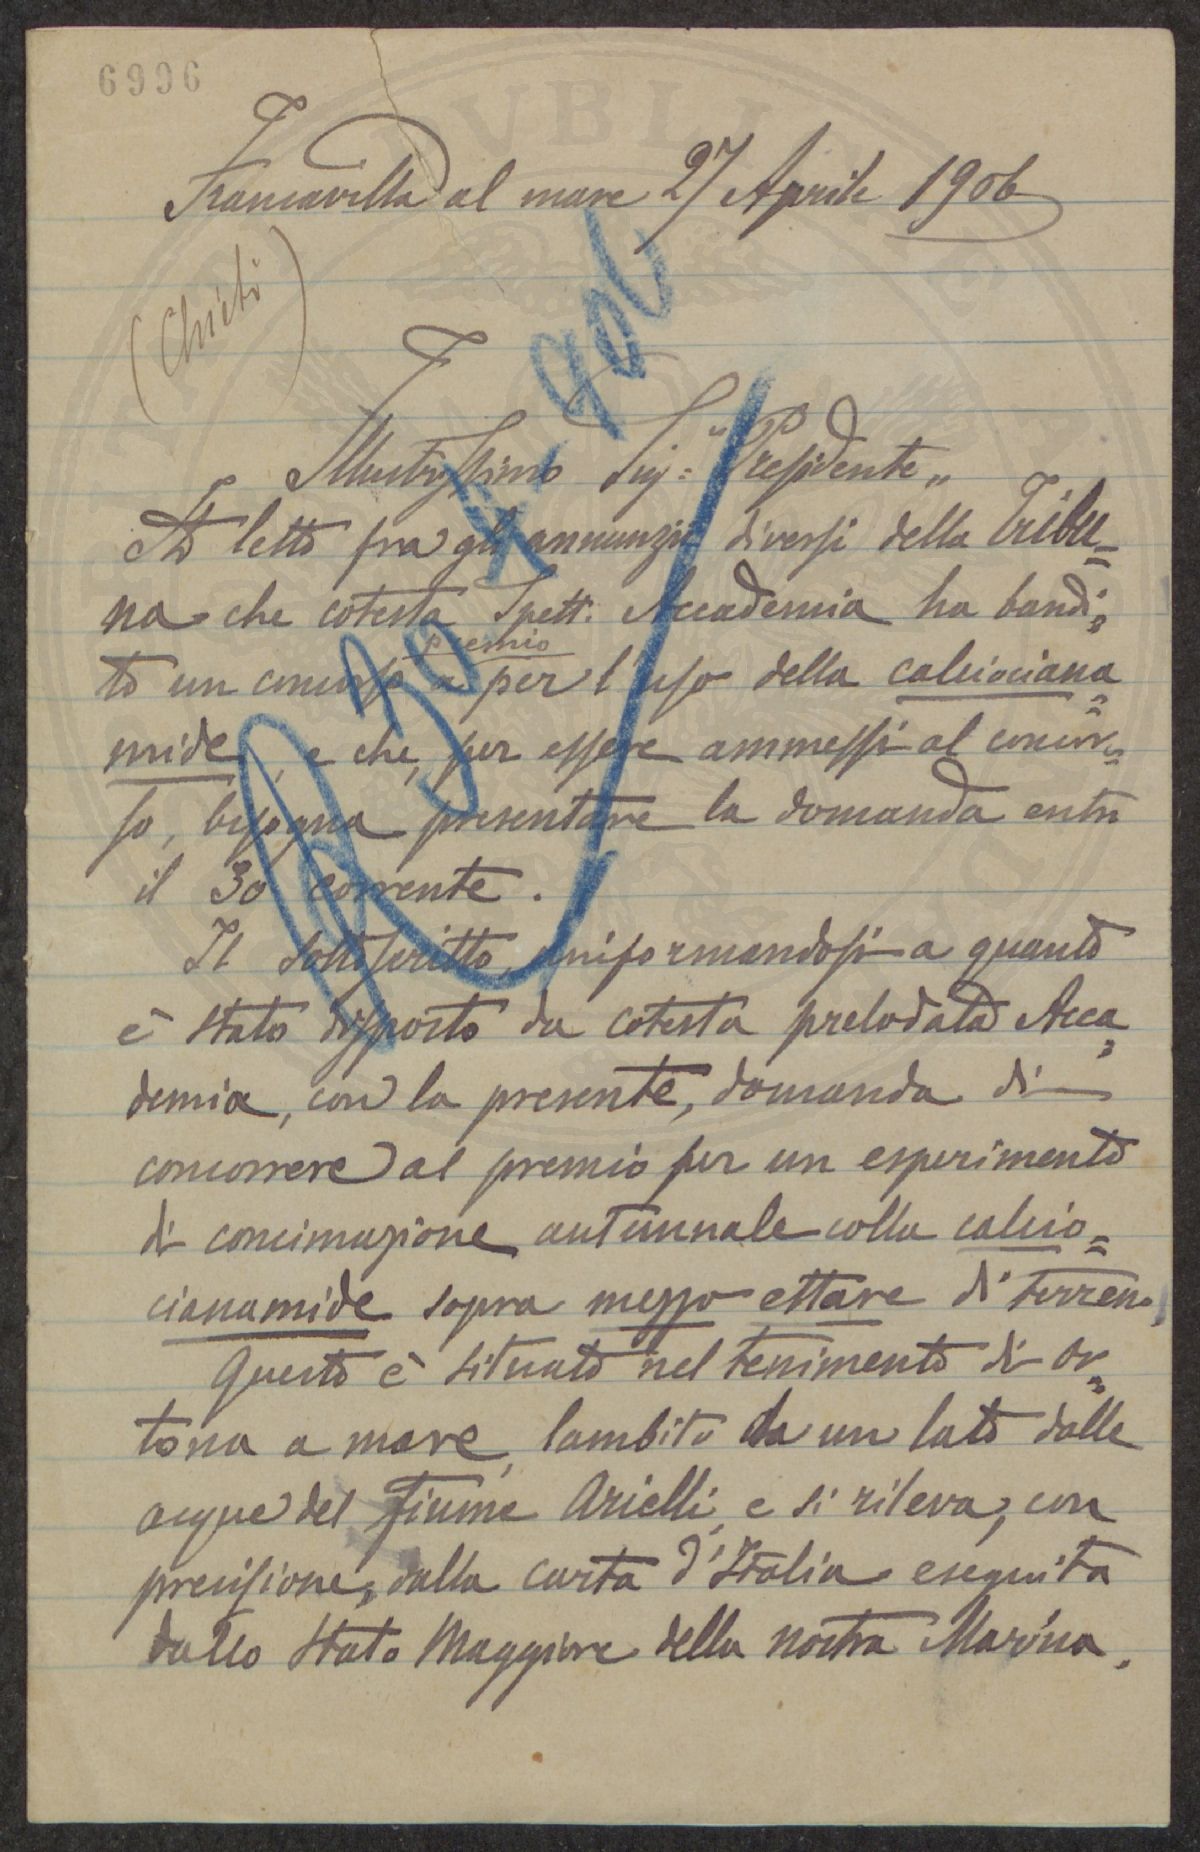 6996
Francavilla al mare 27 Aprile 1906
(Chieti)
Illustrissimo Sig: "Presidente„
Ho letto fra gli annunzii diversi della Tribu=
na che cotesta Spett. Accademia ha bandi=
to un concorso a premio per l'uso della calciociana=
mide, e che, per essere ammessi al concor=
so, bisogna presentare la domanda entro
il 30 corrente.
Il sottoscritto, uniformandosi a quanto
è stato disposto da cotesta prelodata Acca=
demia, con la presente, domanda di
concorrere al premio per un esperimento
di concimazione autunnale colla calcio=
cianamide sopra mezzo ettare di terreno,
Questo è situato nel tenimento di Or=
tona a mare, lambito da un lato dalle
acque del fiume Arielli, e si rileva, con
precisione, dalla carta d'Italia eseguita
dallo Stato Maggiore della nostra Marina.
R 30 4 906